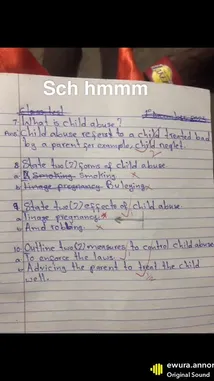 Sch hmmm
7. What is child abuse?
Ans: Child abuse refers to a child treated bad
by a parent for example, child neglet.
8. State two (2) forms of child abuse
a. Smoking
b. Buleging
9. State two (2) effects of child abuse
a. Tinage pregnancy
b. Amd robbing.
10. Outline two (2) measures to control child abuse
a. To enforce the laws.
b. Advicing the parent to treat the child
well.
ewura.annor
Original Sound